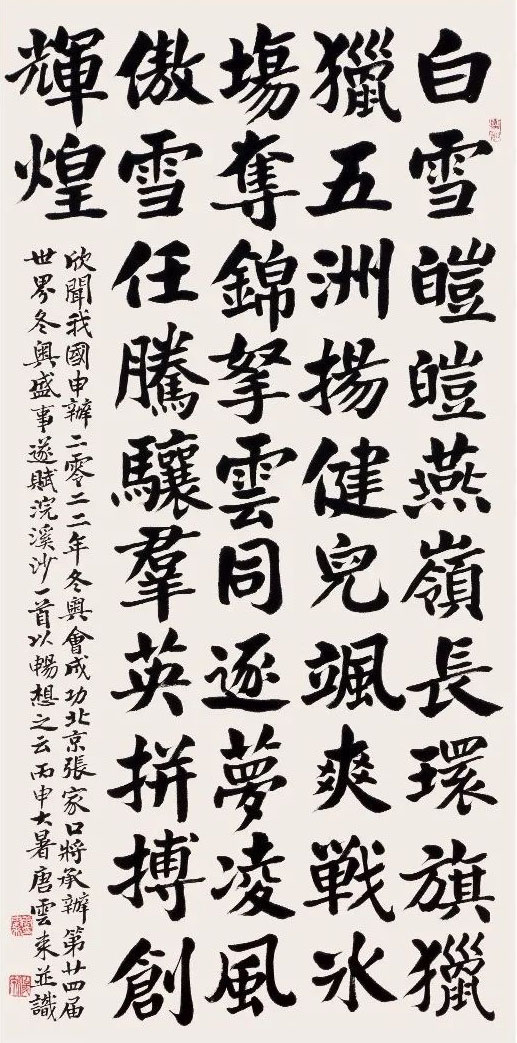 白雪皚皚燕嶺長環旗獵
獵五洲揚健兒颯爽戰冰
塲奪錦拏雲同逐夢凌風
傲雪任騰驤羣英拼搏創
輝煌
欣聞我國申辦二零二二年冬奧會成功北京張家口將承辦第廿四届
世界冬奧盛事遂賦浣溪沙一首以暢想之云丙申大暑唐雲来並識